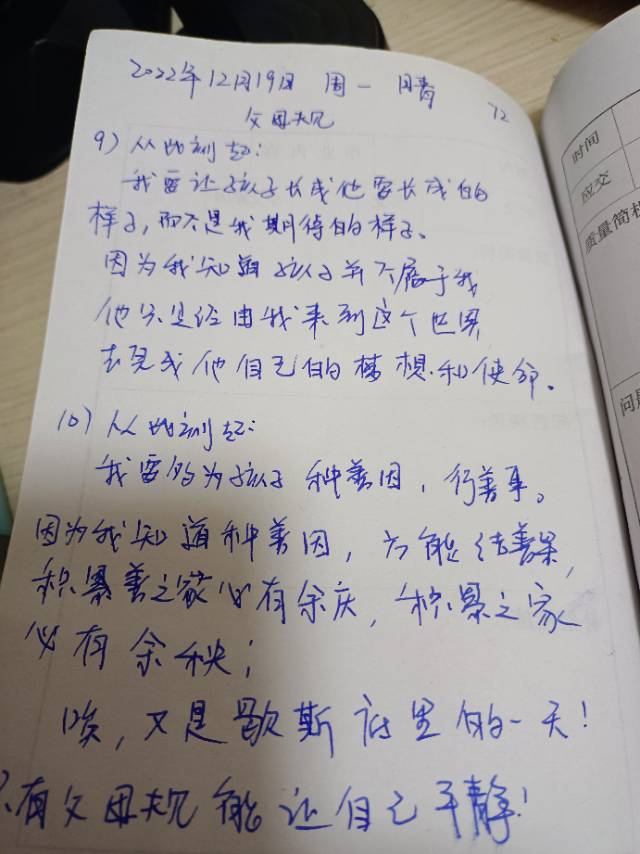 2022年12月19日 周一 晴
72
父母规
9) 从此刻起:
我要让孩子长成他要长成的
样子,而不是我期待的样子。
因为我知道孩子并不属于我
他只是经由我来到这个世界
去完成他自己的梦想和使命。
10) 从此刻起:
我要多为孩子种善因,行善事。
因为我知道种善因,方能结善果,
积善之家必有余庆,积恶之家
必有余殃;
唉,又是歇斯底里的一天!
只有父母规能让自己平静!
时间
应交
质量简
问题